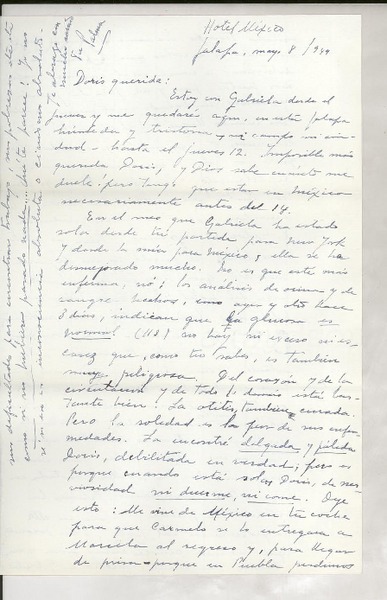 Hotel México
Jalapa, mayo 8/949
Doris querida:
Estoy con Gabriela desde el
jueves y me quedaré aquí, en esta Jalapa
húmeda y tristona y mi campo mi
hasta el jueves 12. Imposible más
querida Doris, y Dios sabe cuánto me
duele! pero tengo que estar en México
necesariamente antes del 14.
En el mes que Gabriela ha estado
sola desde tu partida para New York
y desde la mía para México, ella se ha
desmejorado mucho. No es que esté más
enferma, no; los análisis de orina y de
sangre hechos, uno ayer y otro hace
8 días, indican que la glucosa es
normal (118) no hay ni exceso ni es-
casez que, como tú sabes, es también
muy peligrosa. Del corazón y de la
circulación y de todo lo demás está bas-
tante bien. La otitis, también curada.
Pero la soledad es la peor de sus enfer-
medades. La encontré delgada y pálida
Doris, debilitada en verdad; pero es
porque cuando está sola, Doris, de ner-
viosidad ni duerme, ni come. Oye
esto: Me vine de México en tu coche
para que Carmela se lo entregara a
Marcela al regreso y, para llegar
de prisa - porque en Puebla perdimos
sus dificultades para encontrar trabajo,
como si no hubiera pasado nada. Qué te parece? Yo no
sé si es inconsciencia absoluta o cinismo absoluto.
Te abraza con
mucho cariño
tu Palma